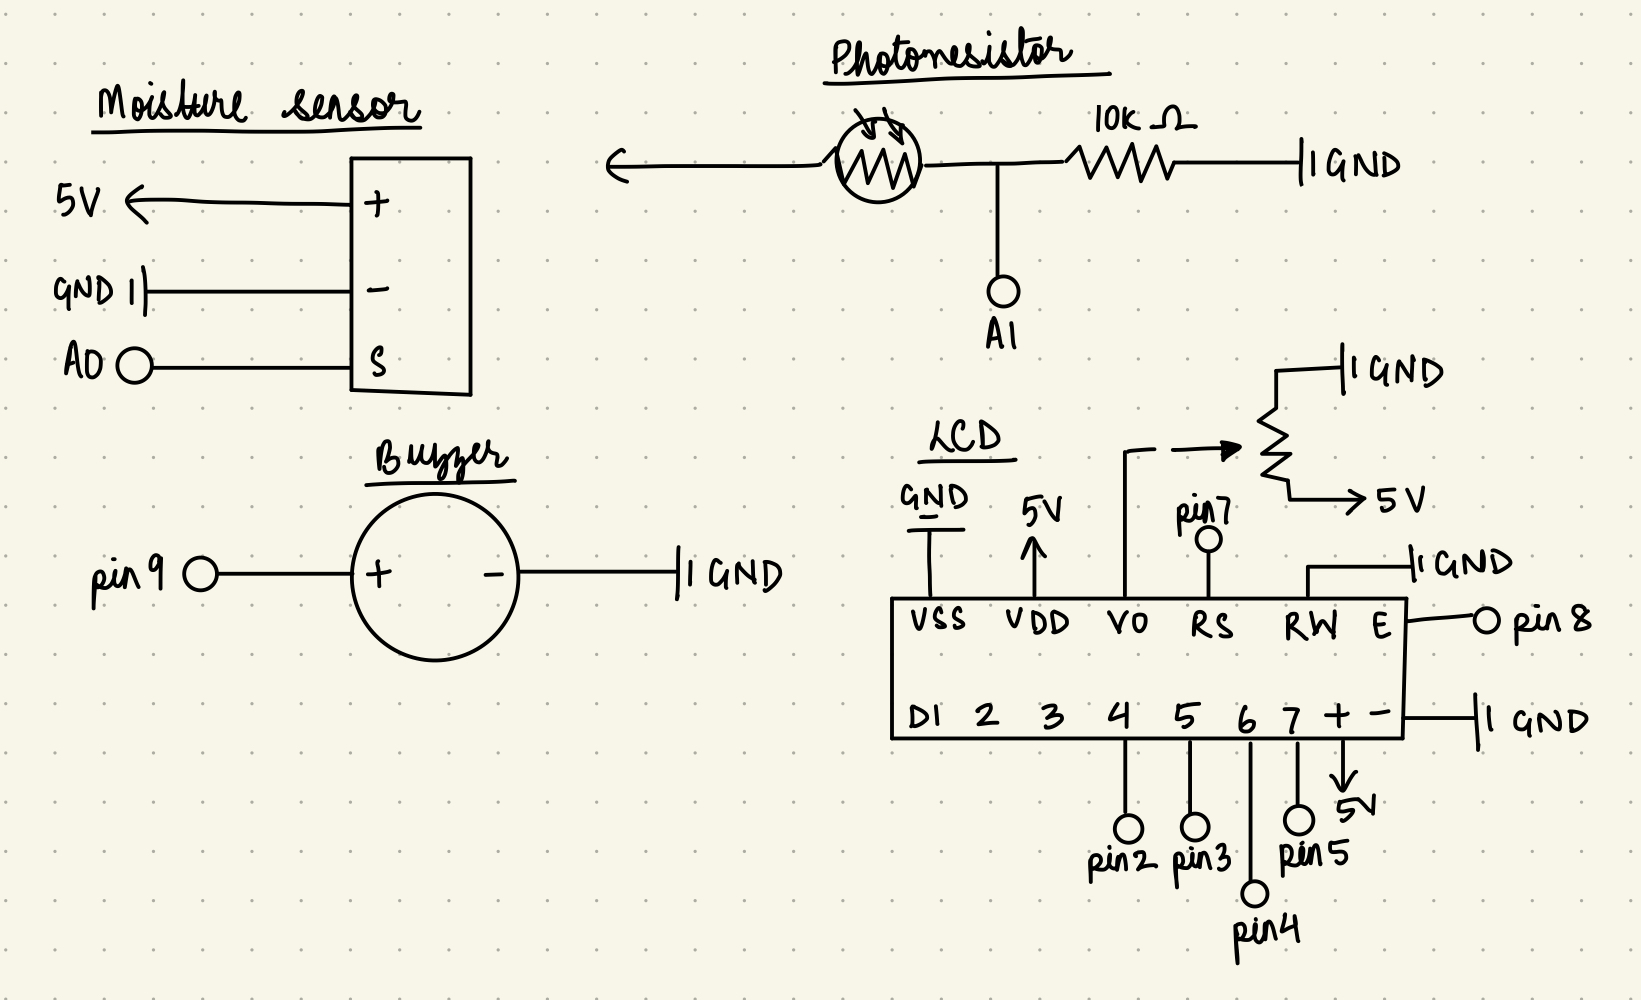 Moisture sensor
5V
+
GND
-
A0
S
Photoresistor
10K Ω
GND
A1
Buzzer
pin 9
+
-
GND
LCD
GND
5V
pin7
GND
5V
GND
VSS VDD VO RS RW E
pin 8
D1 2 3 4 5 6 7 + -
GND
5V
pin2
pin3
pin4
pin5